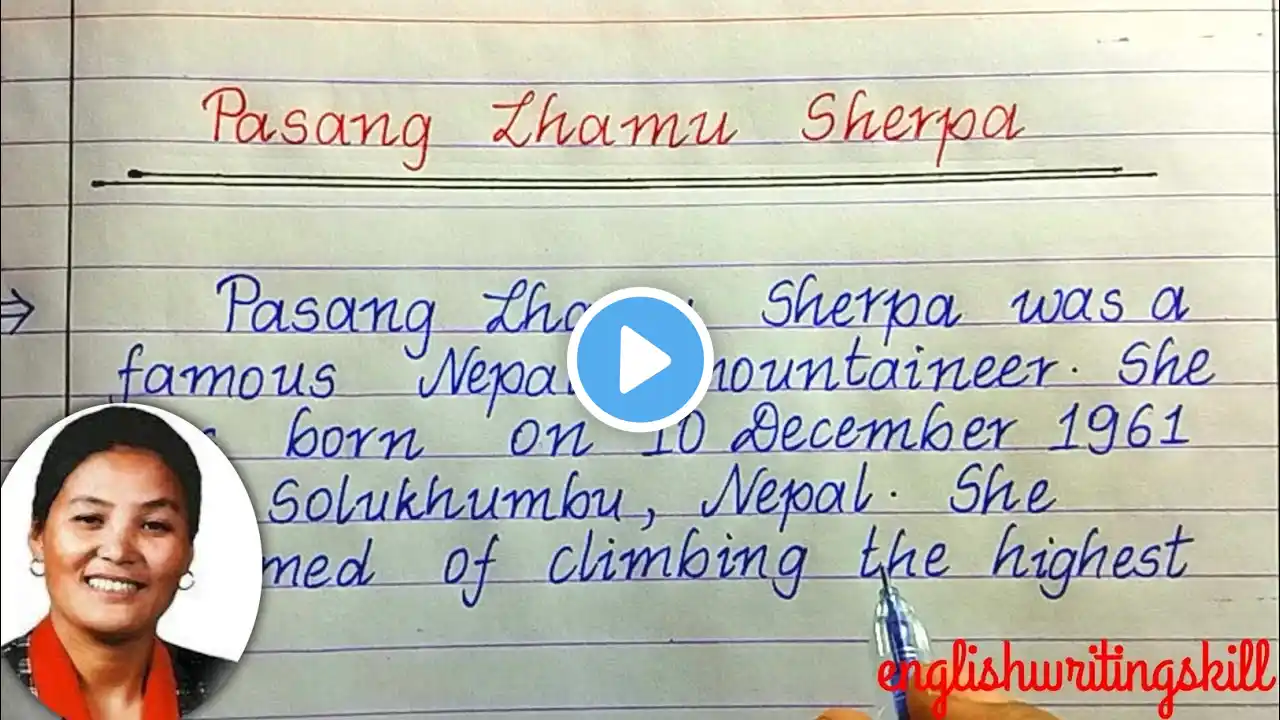 Pasang Lhamu Sherpa
⇒ Pasang Sherpa was a
famous mountaineer. She
born on 10 December 1961
Solukhumbu, Nepal. She
of climbing the highest
englishwritingskill